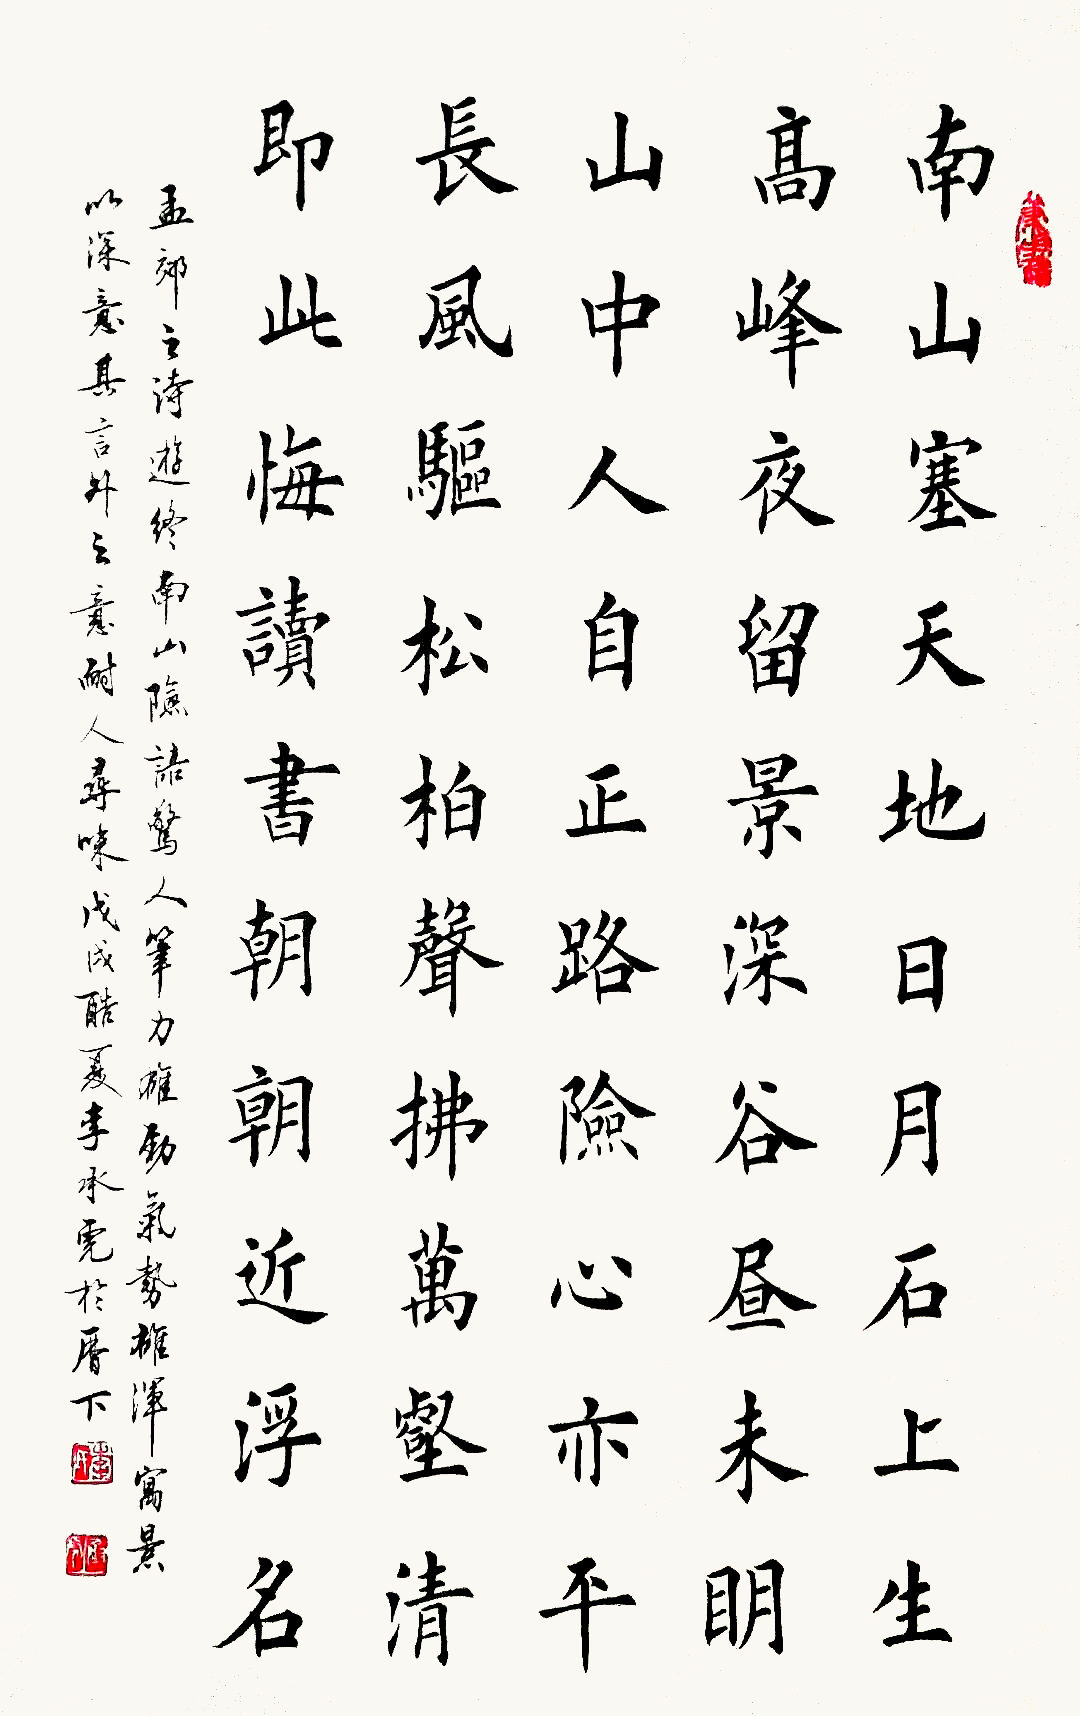 南山塞天地日月石上生
高峰夜留景深谷昼未眀
山中人自正路險心亦平
長風驅松柏聲拂萬壑清
即此悔讀書朝朝近浮名
孟郊之詩遊終南山險語驚人筆力雄勁氣勢雄渾寓景
以深意其言外之意耐人尋味戊戌酷夏李承霓於厝下